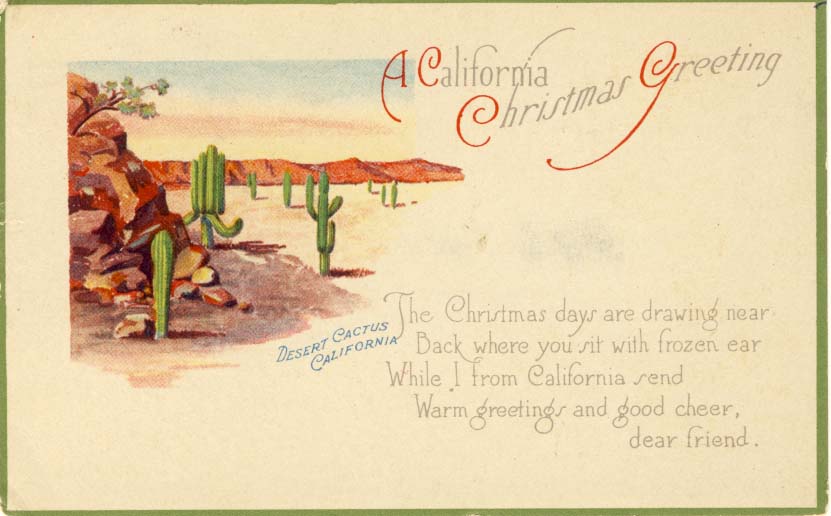 A California
Christmas Greeting
Desert Cactus
California
The Christmas days are drawing near
Back where you sit with frozen ear
While I from California send
Warm greetings and good cheer,
dear friend.